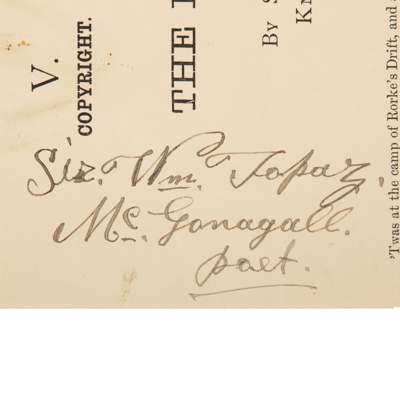 V.
COPYRIGHT.
THE
By S
Kn
'Twas at the camp of Rorke's Drift, and
Sir. Wm. Topaz,
Mc. Gonagall.
poet.